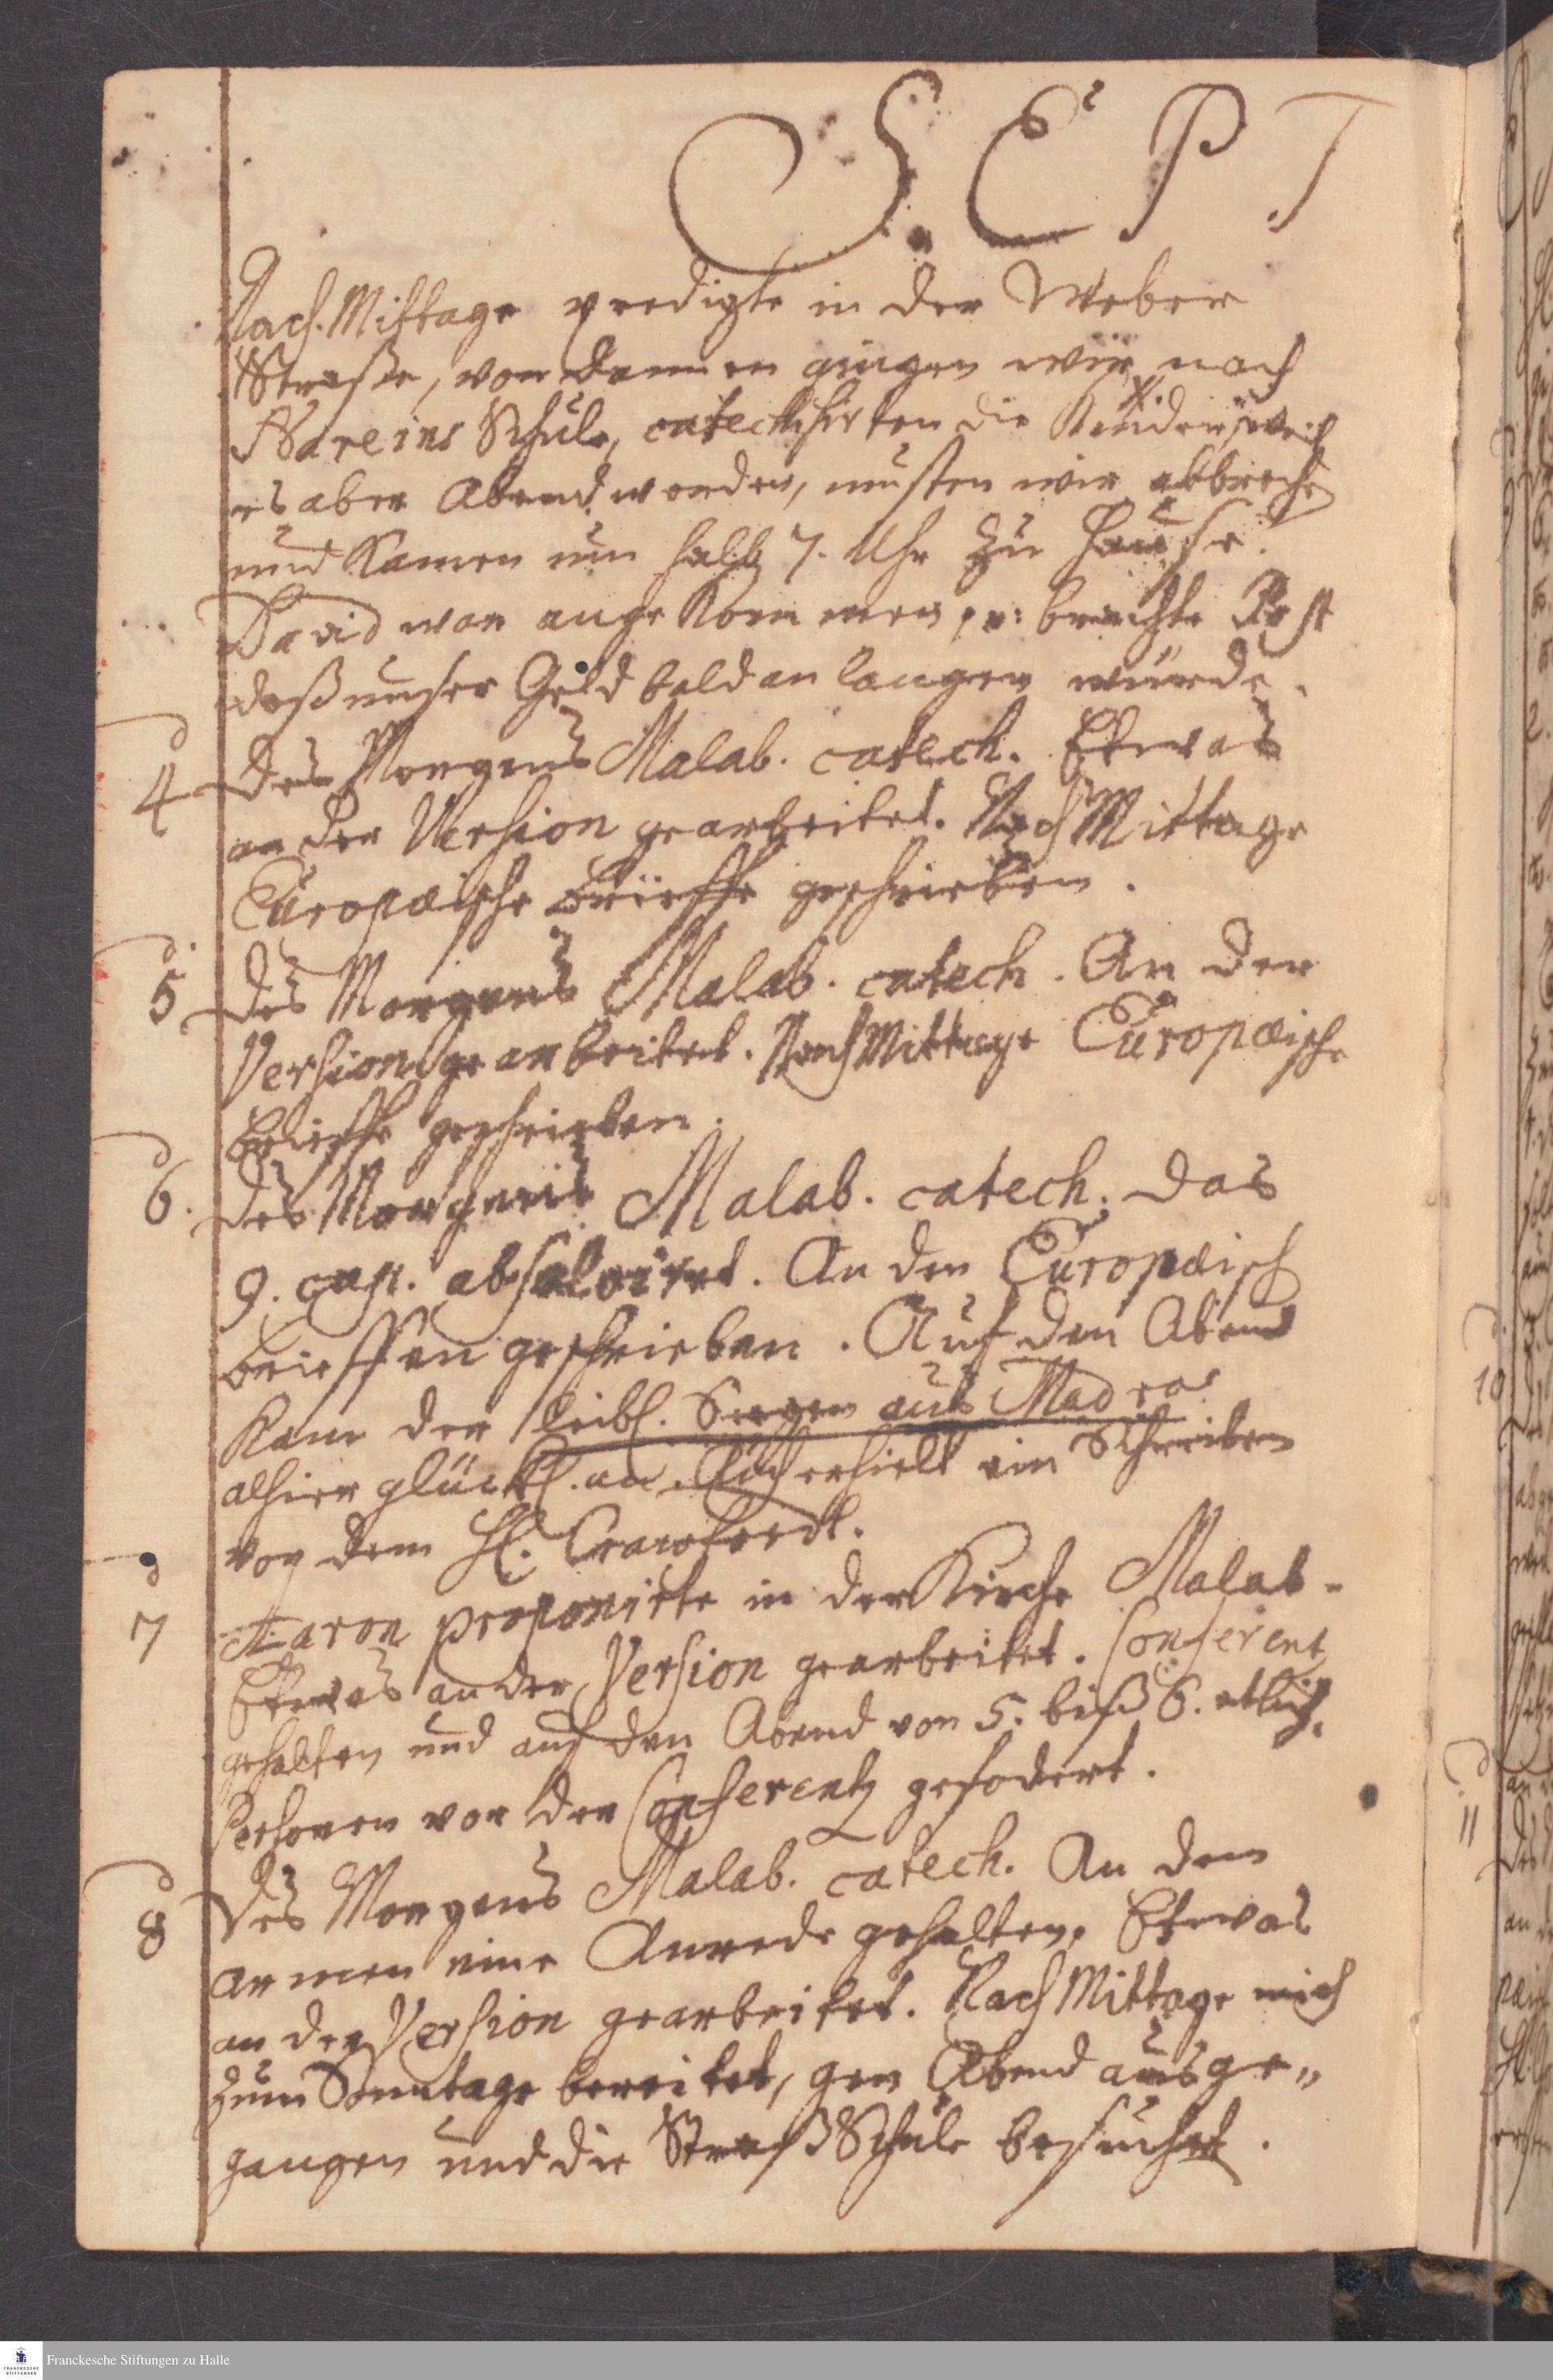 S. E P T
Nach Mittage predigte in der Weber
Straße, von dannen gingen wir nach
Schule, catechisirten die Kinder, weil
es aber Abend worden, musten wir abbreche
und kamen um halb 7. Uhr zu Hause.
David war angekommen, u: brachte Post
daß unser Geld bald anlangen würde.
d
4 Des Morgens Malab. catech. Etwas
an der Version gearbeitet. Nach Mittage
Europæische Brieffe geschrieben.
d.
5 Des Morgens Malab. catech. An der
Version gearbeitet. Nach Mittage Europæische
Brieffe geschrieben.
d
6. Des Morgens Malab. catech. Das
9. cap. absolviret. An den Europæisch
Brieffen geschrieben. Auf den Abend
kam der leibl. Seegen aus Madras
alhier glückl. an. Auch erhielt ein Schreiben
von dem H. Crawfordt.
d
7 Aaron proponirte in der Kirche Malab.
Etwas an der Version gearbeitet. Conferentz
gehalten und auf den Abend von 5. biß 6. etlich.
Personen vor der Conferentz gefodert.
d
8 Des Morgens Malab. catech. An dem
armen eine Anrede gehalten. Etwas
an der Version gearbeitet. Nach Mittage mich
zum Sonntage bereitet, gen Abend ausge„
gangen und die Straß Schule besuchet.
10
11
Franckesche Stiftungen zu Halle